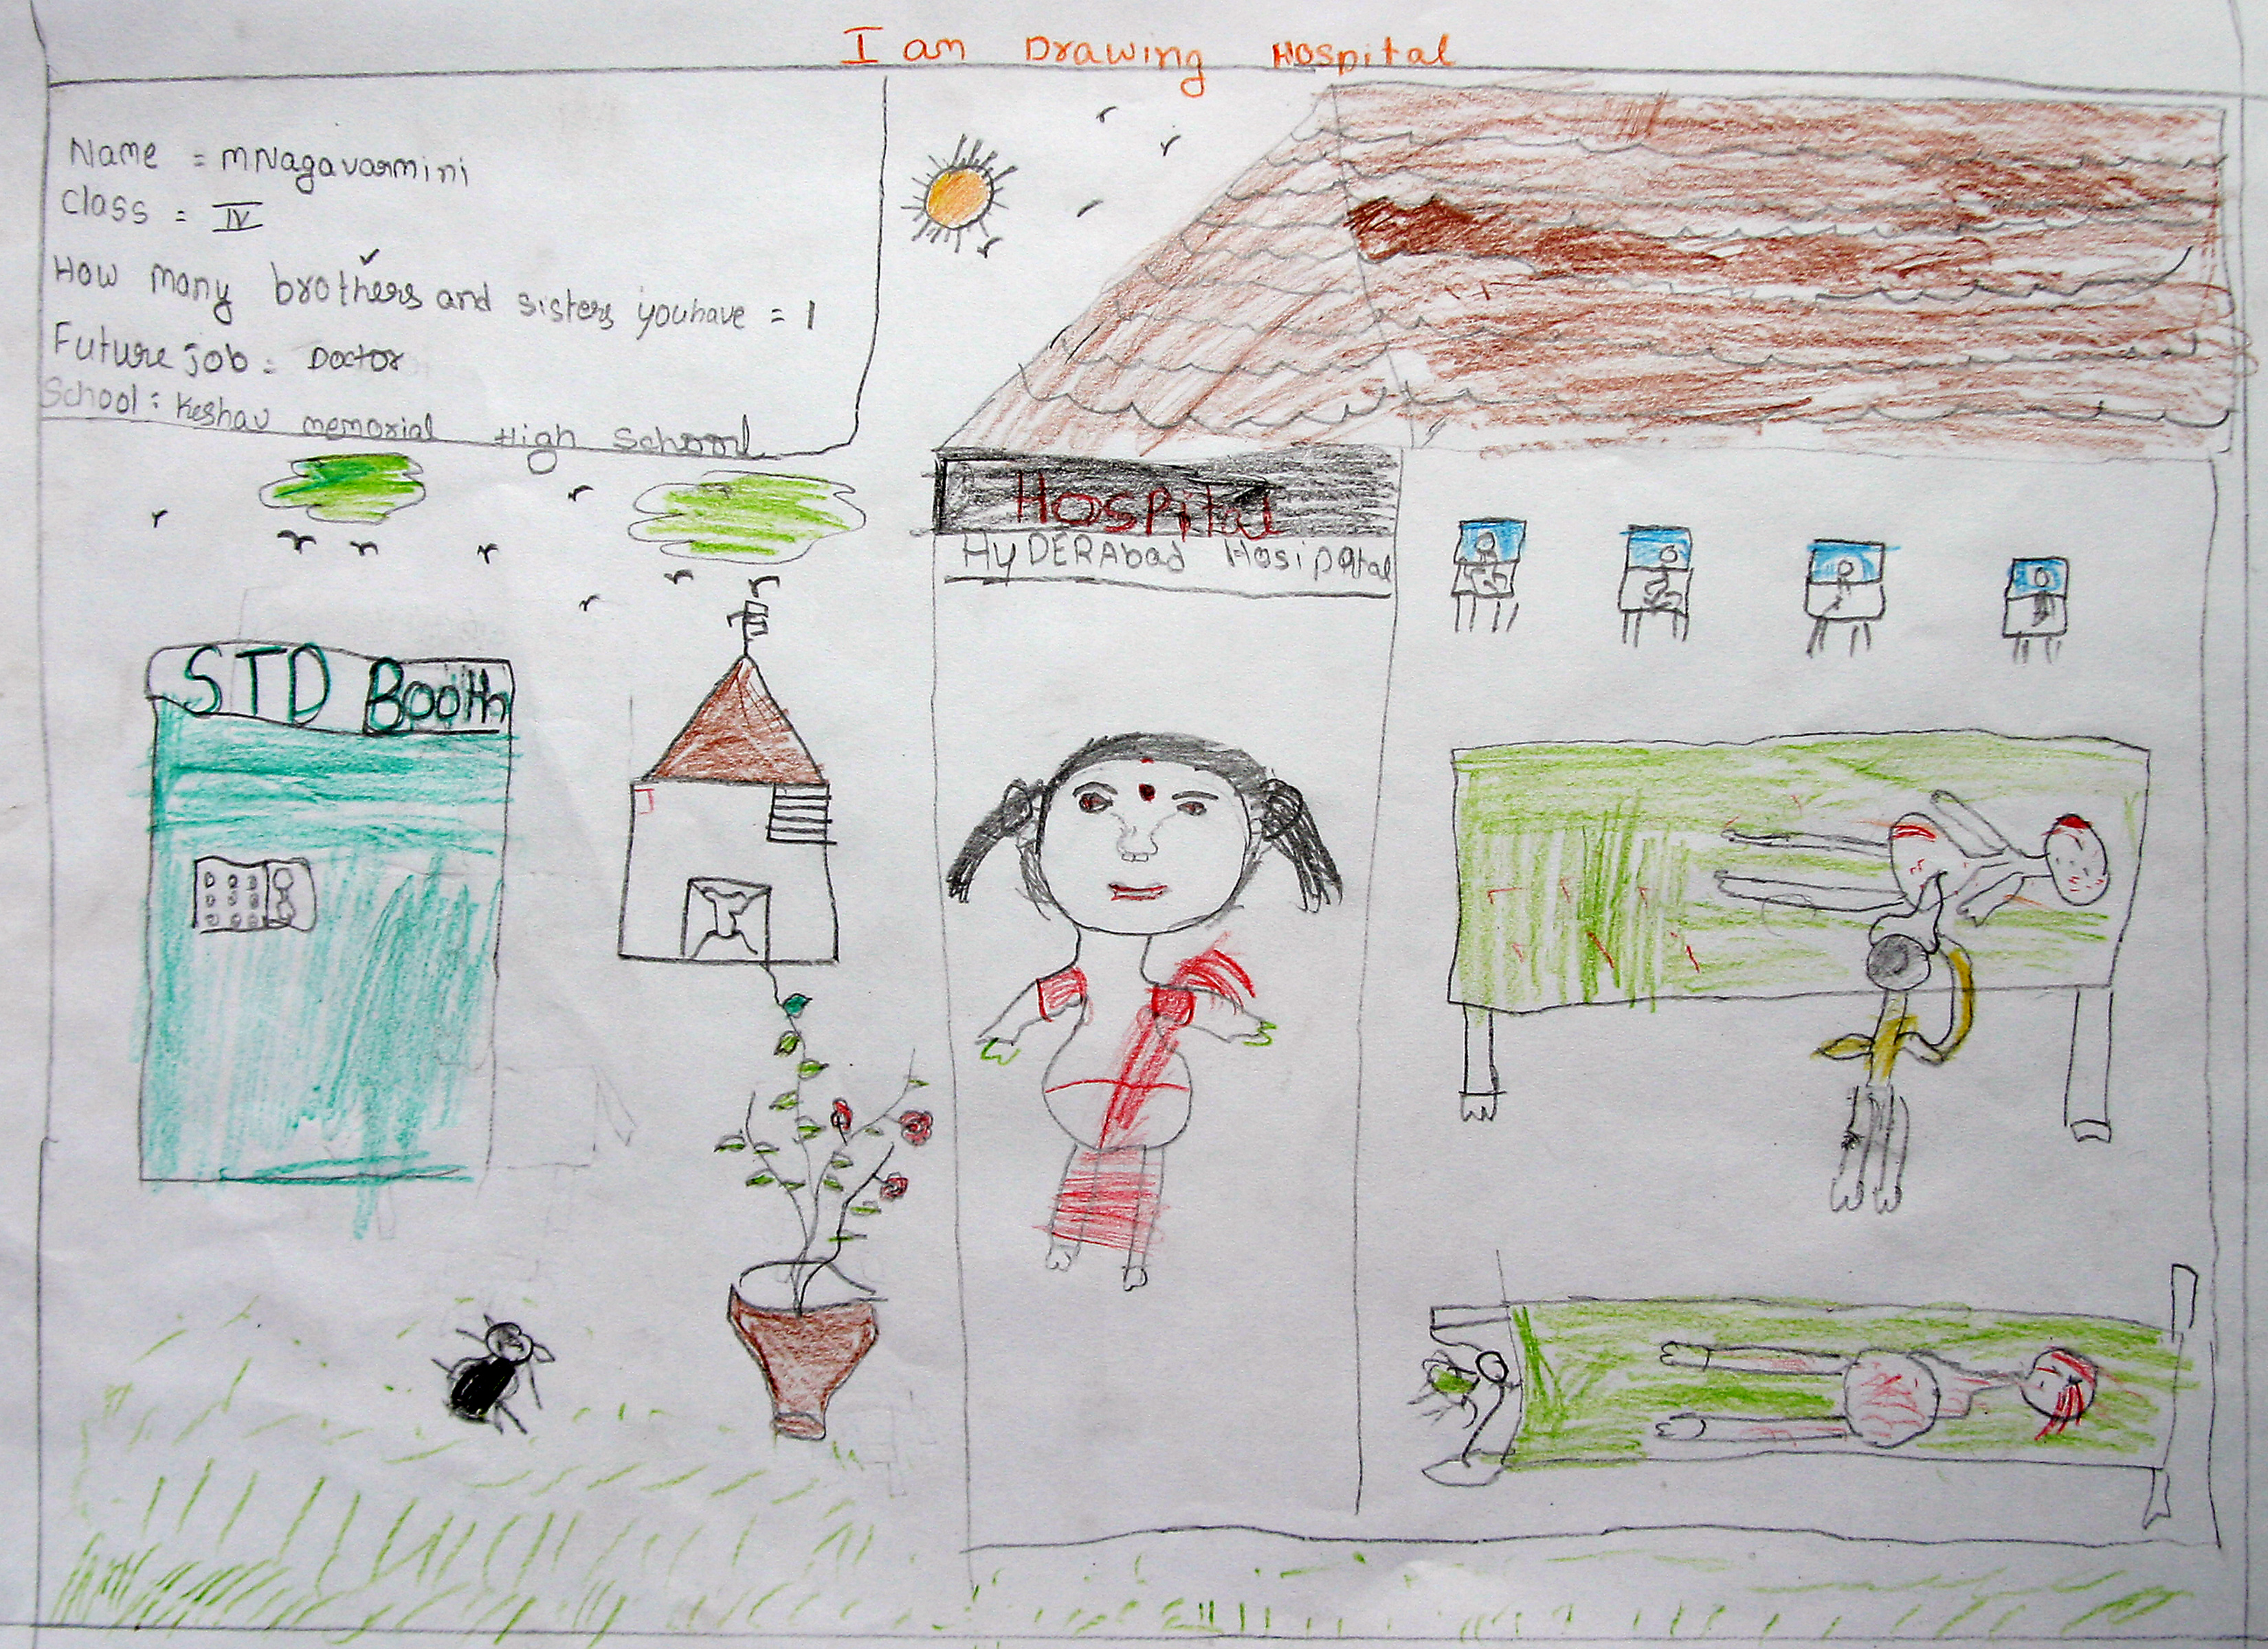 I am Drawing Hospital
Name = MNagavarmini
Class = IV
How many brothers and sisters youhave = 1
Future job = Doctor
School : Keshav memorial High School
Hospital
HyDERAbad Hosipatal
STD Booth